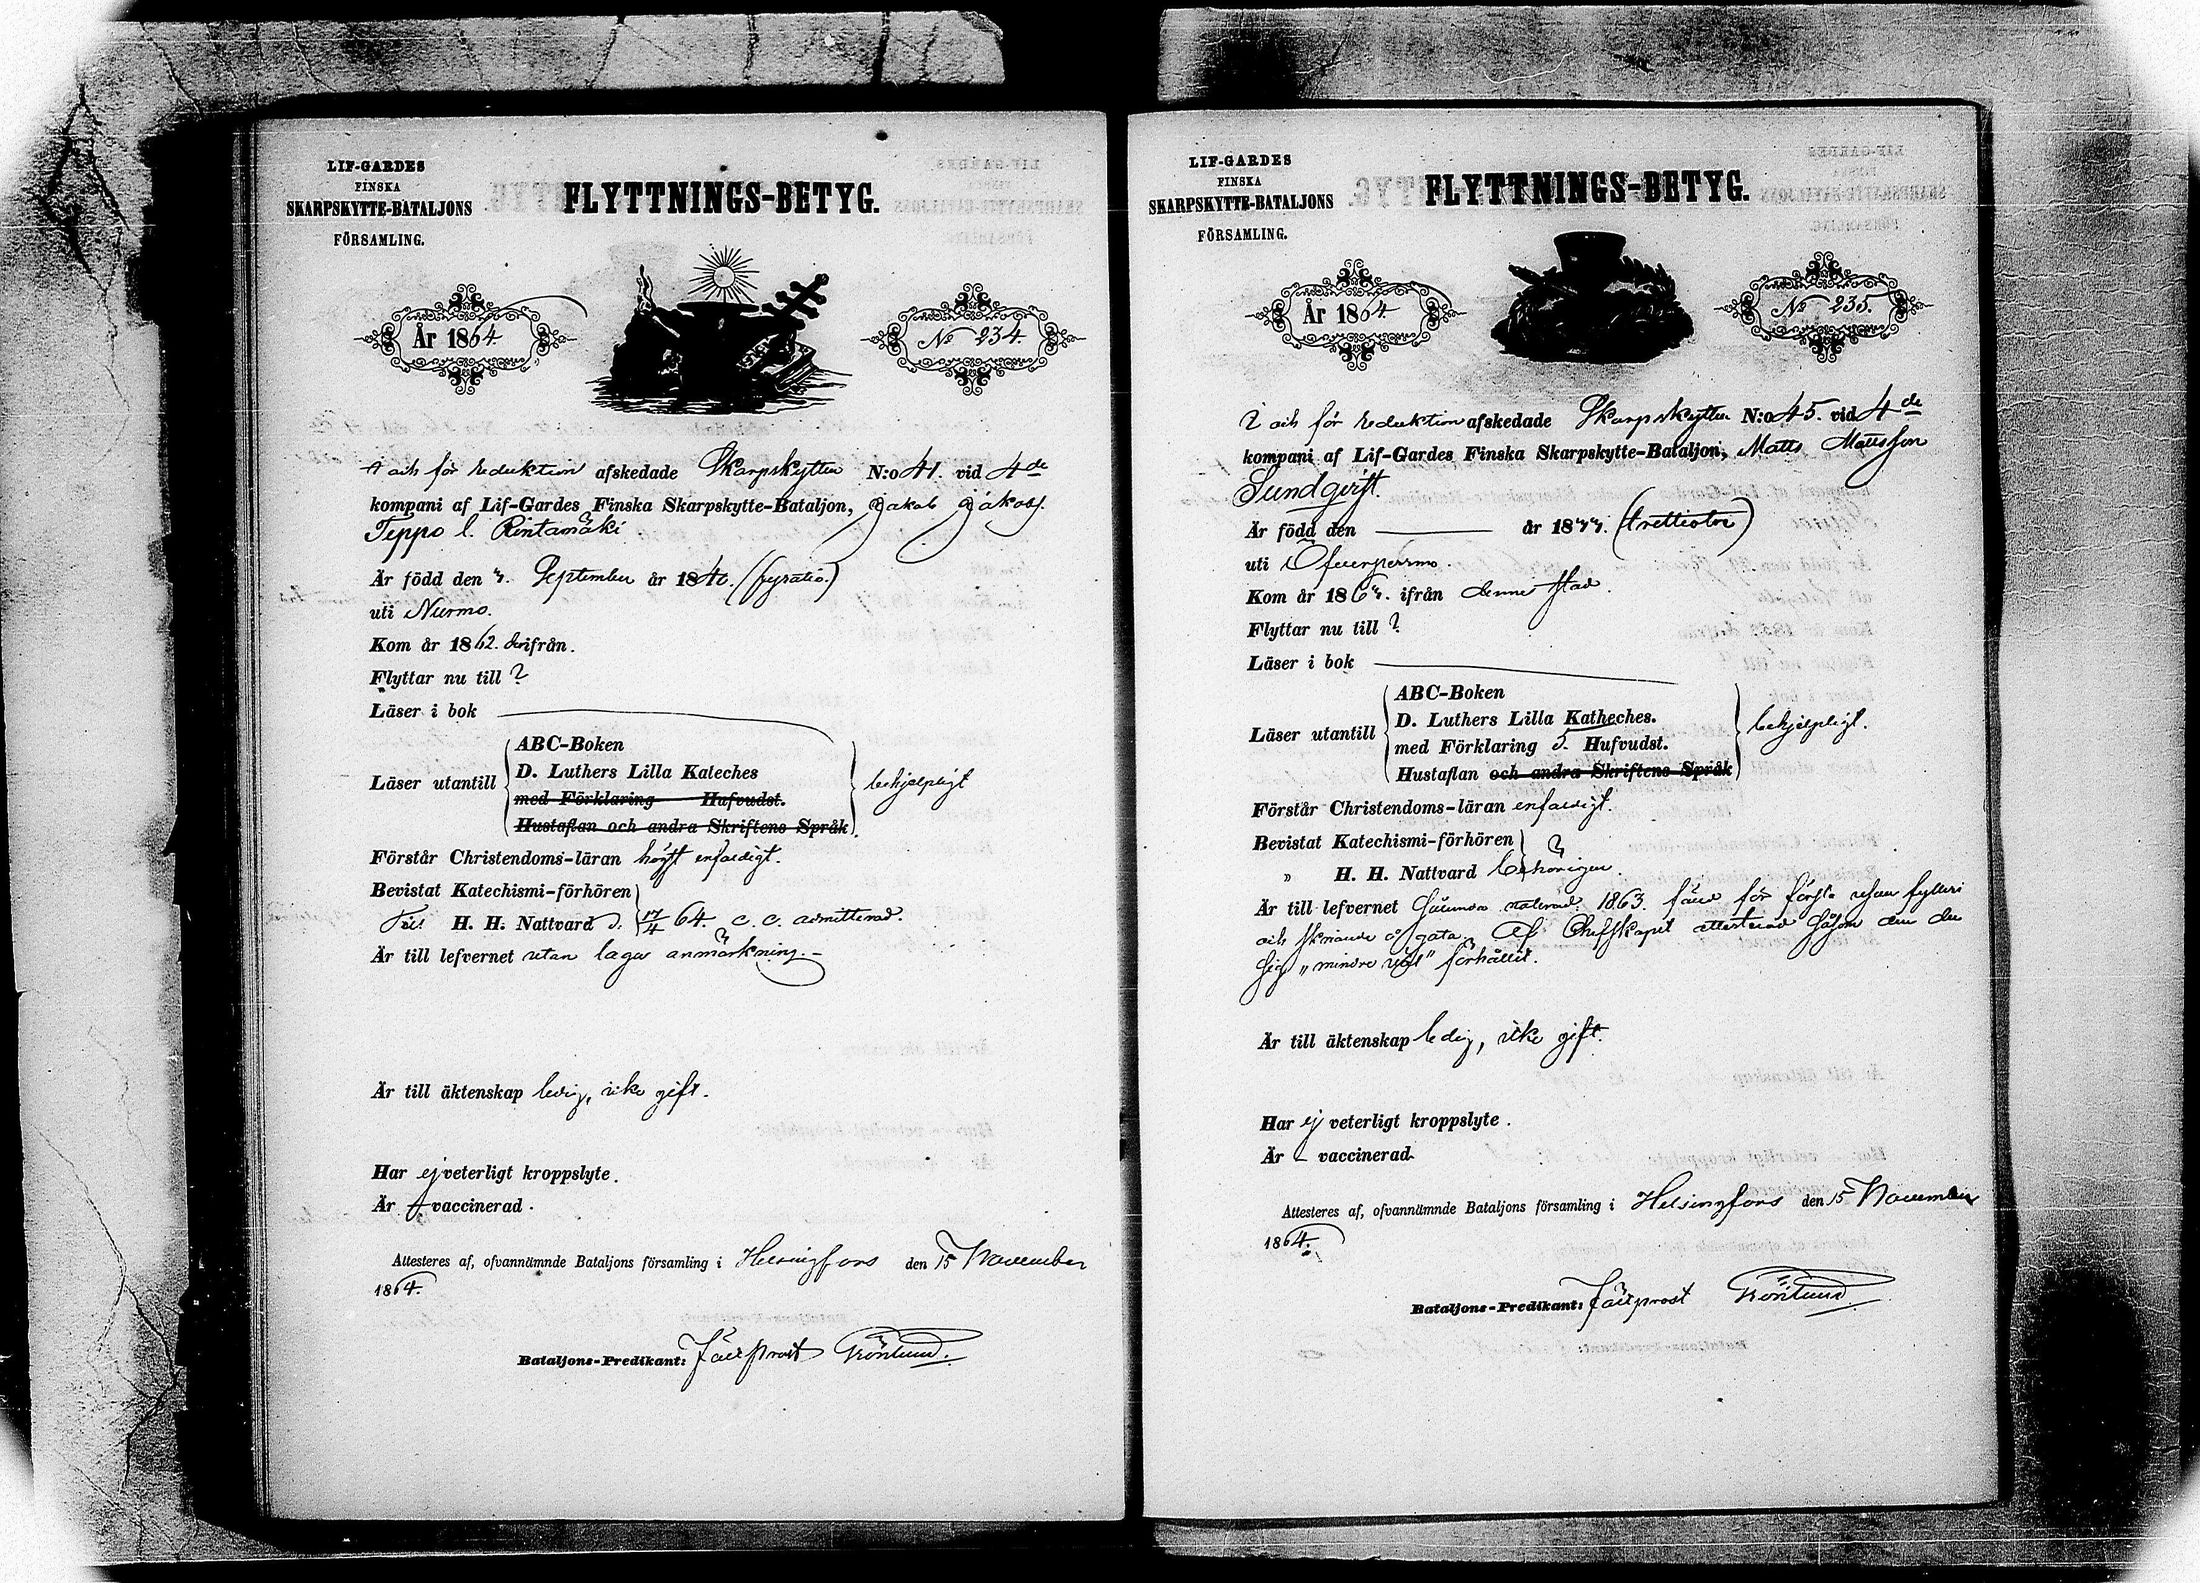 LIF-GARDES
FINSKA
SKARPSKYTTE-BATALJONS
FÖRSAMLING.
FLYTTNINGS-BETYG.
År 1864.
No 234.
I och för reduktion afskedade Skarpskytten N:o 41. vid 4de
kompani af Lif-Gardes Finska Skarpskytte-Bataljon, Jakob Jakobs.
Teppo l. Rintamäki
Är född den September år 1840. (fyratio.)
uti Nurmo.
Kom år 1862. derifrån.
Flyttar nu till ?
Läser i bok
Läser utantill
ABC-Boken
D. Luthers Lilla Kateches
med Förklaring Hufvudst.
Hustaflan och andra Skriftens Språk
behjelpligt
Förstår Christendoms-läran högst enfaldigt.
Bevistat Katechismi-förhören
Till H. H. Nattvard d. 17/4 64. c. c. admitterad.
Är till lefvernet utan laga anmärkning.
Är till äktenskap ledig, icke gift.
Har ej veterligt kroppslyte.
Är vaccinerad.
Attesteres af, ofvannämnde Bataljons församling i Helsingfors den 15 November
1864.
Bataljons-Predikant: Fältprost Grönlund.
LIF-GARDES
FINSKA
SKARPSKYTTE-BATALJONS
FÖRSAMLING.
FLYTTNINGS-BETYG.
År 1864
No 235.
I och för reduktion afskedade Skarpskytten N:o 45. vid 4de
kompani af Lif-Gardes Finska Skarpskytte-Bataljon, Matts Mattsson
Sundqvist.
Är född den år 1833. (trettiotre)
uti Öfverpurmo.
Kom år 1863. ifrån denne stad.
Flyttar nu till ?
Läser i bok
Läser utantill
ABC-Boken
D. Luthers Lilla Katheches.
med Förklaring 5. Hufvudst.
Hustaflan och andra Skriftens Språk
behjelpligt.
Förstår Christendoms-läran enfaldigt.
Bevistat Katechismi-förhören ?
" H. H. Nattvard behörigen.
Är till lefvernet 1863. för första resan fylleri
och skriande å gata. Af Chefskapet attesterad såsom den der
sig "mindre väl" förhållit.
Är till äktenskap ledig, icke gift.
Har ej veterligt kroppslyte.
Är vaccinerad
Attesteres af, ofvannämnde Bataljons församling i Helsingfors den 15 November
1864.
Bataljons-Predikant: Fältprost Grönlund.